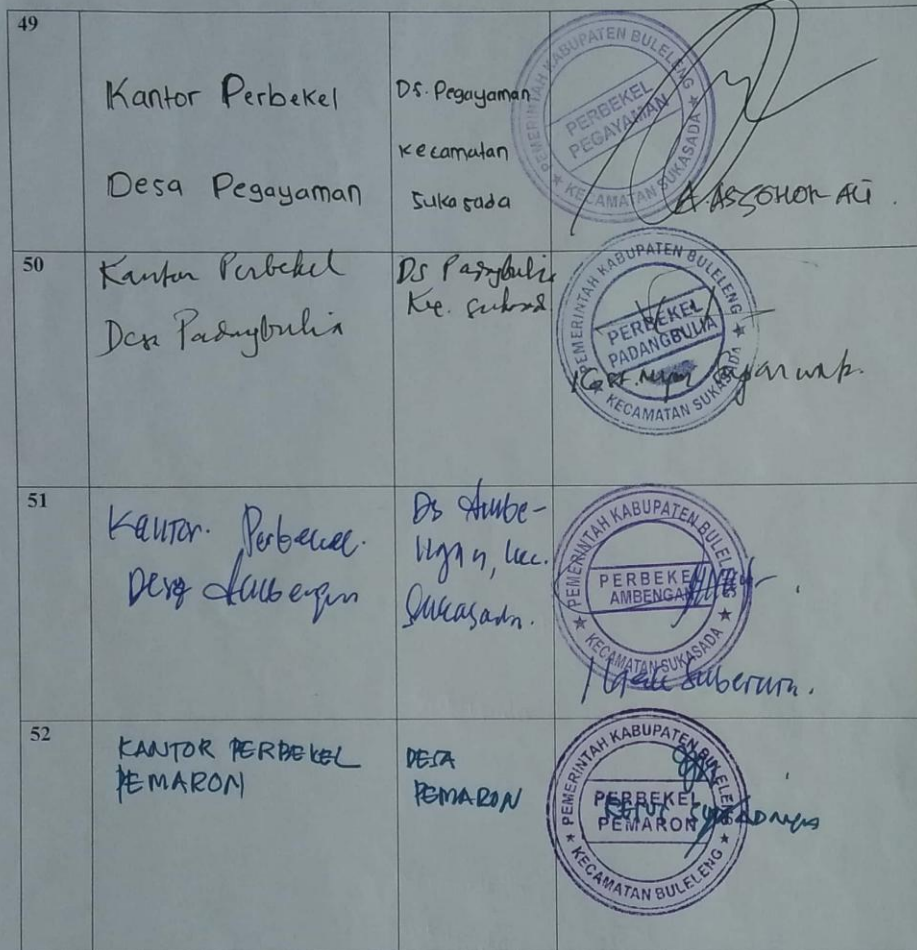 49
Kantor Perbekel
Desa Pegayaman
Ds. Pegayaman
Kecamatan
Sukasada
PEMERINTAH KABUPATEN BULELENG
PERBEKEL
PEGAYAMAN
KECAMATAN SUKASADA
50
Kantor Perbekel
Desa Padangbulia
Ds Padangbulia
Kec.
PEMERINTAH KABUPATEN BULELENG
PERBEKEL
PADANGBULIA
KECAMATAN SUKASADA
51
Kantor. Perbekel.
Desa Ambengan
Ds Ambe-
ngan, Kec.
Sukasada.
PEMERINTAH KABUPATEN BULELENG
PERBEKEL
AMBENGAN
KECAMATAN SUKASADA
52
KANTOR PERBEKEL
PEMARON
DESA
PEMARON
PEMERINTAH KABUPATEN BULELENG
PERBEKEL
PEMARON
KECAMATAN BULELENG